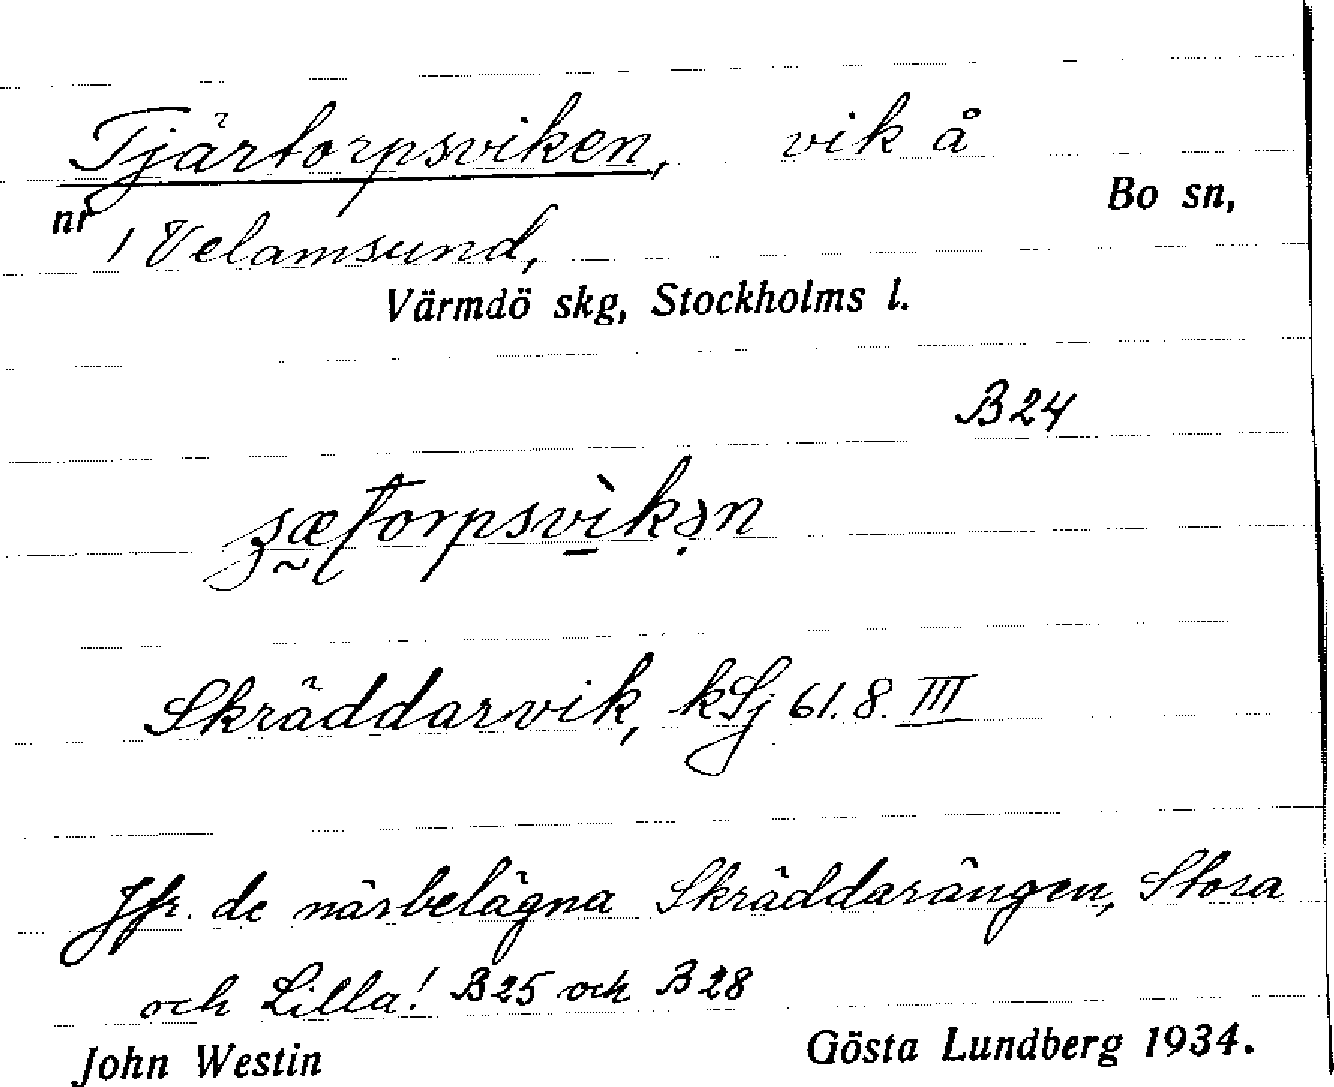 Tjärtorpsviken, vik å
Bo sn,
nr 1 Velamsund,
Värmdö skg, Stockholms l.
B24
Skräddarvik, kSj 61.8. III
Jfr. de närbelägna Skräddarängen, Stora
och Lilla! B25 och B28
John Westin Gösta Lundberg 1934.